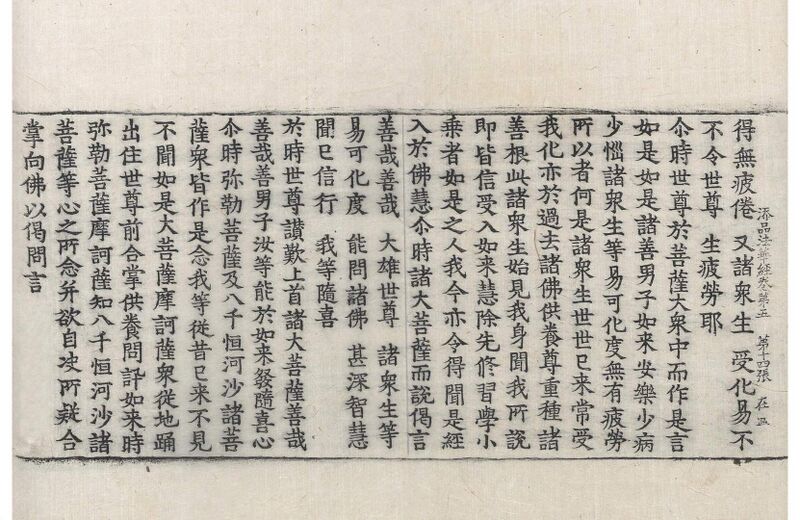 添品法華經卷第五 第十四張 在五
得無疲倦 又諸衆生 受化易不
不令世尊 生疲勞耶
尒時世尊於菩薩大衆中而作是言
如是如是諸善男子如来安樂少病
少惱諸衆生等易可化度無有疲勞
所以者何是諸衆生世世已来常受
我化亦於過去諸佛供養尊重種諸
善根此諸衆生始見我身聞我所說
即皆信受入如来慧除先修習學小
乘者如是之人我今亦令得聞是經
入於佛慧尒時諸大菩薩而說偈言
善哉善哉 大雄世尊 諸衆生等
易可化度 能問諸佛 甚深智慧
聞已信行 我等隨喜
於時世尊讃歎上首諸大菩薩善哉
善哉善男子汝等能於如来發隨喜心
尒時弥勒菩薩及八千恒河沙諸菩
薩衆皆作是念我等從昔已来不見
不聞如是大菩薩摩訶薩衆從地踊
出住世尊前合掌供養問訊如来時
弥勒菩薩摩訶薩知八千恒河沙諸
菩薩等心之所念并欲自决所疑合
掌向佛以偈問言